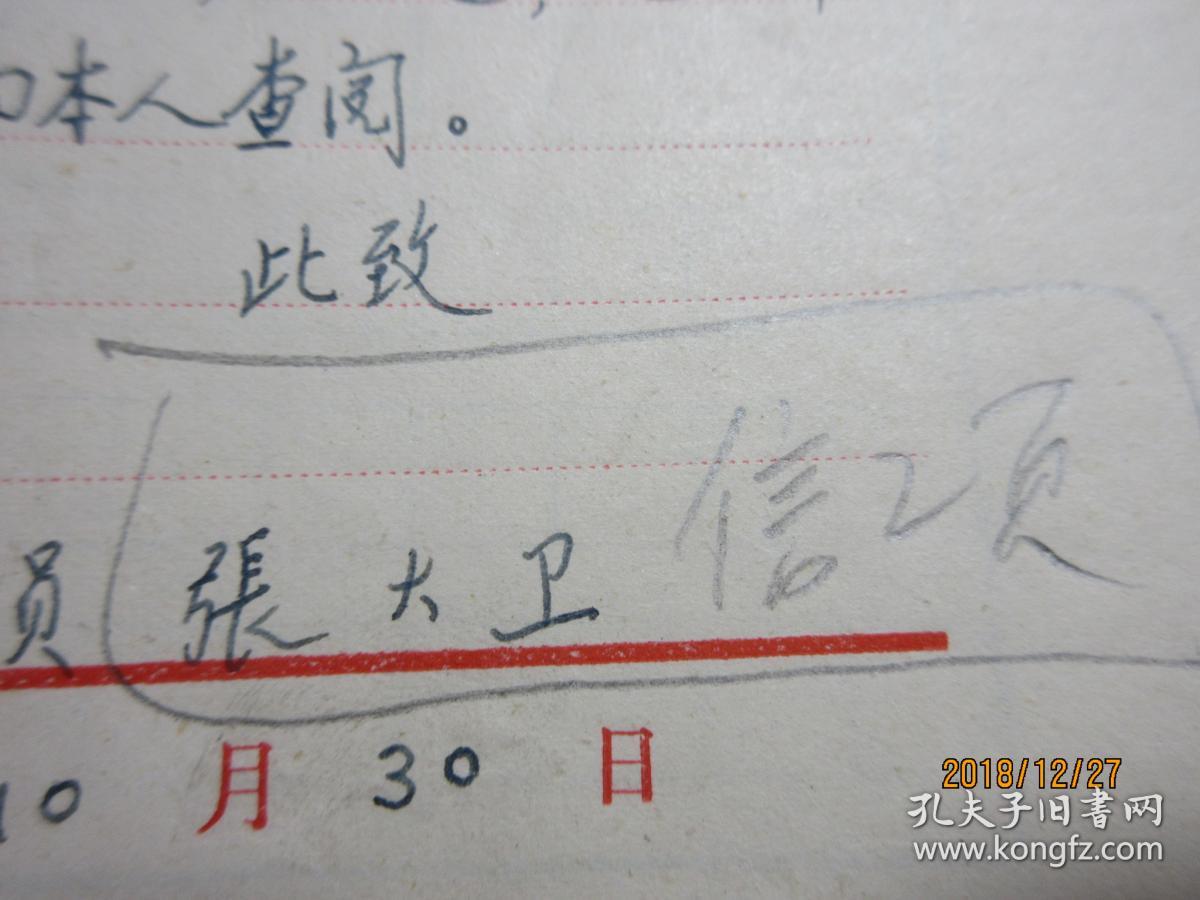 本人查阅。
此致
信2页
员 張大卫
10月30日
2018/12/27
孔夫子旧书网
www.kongfz.com